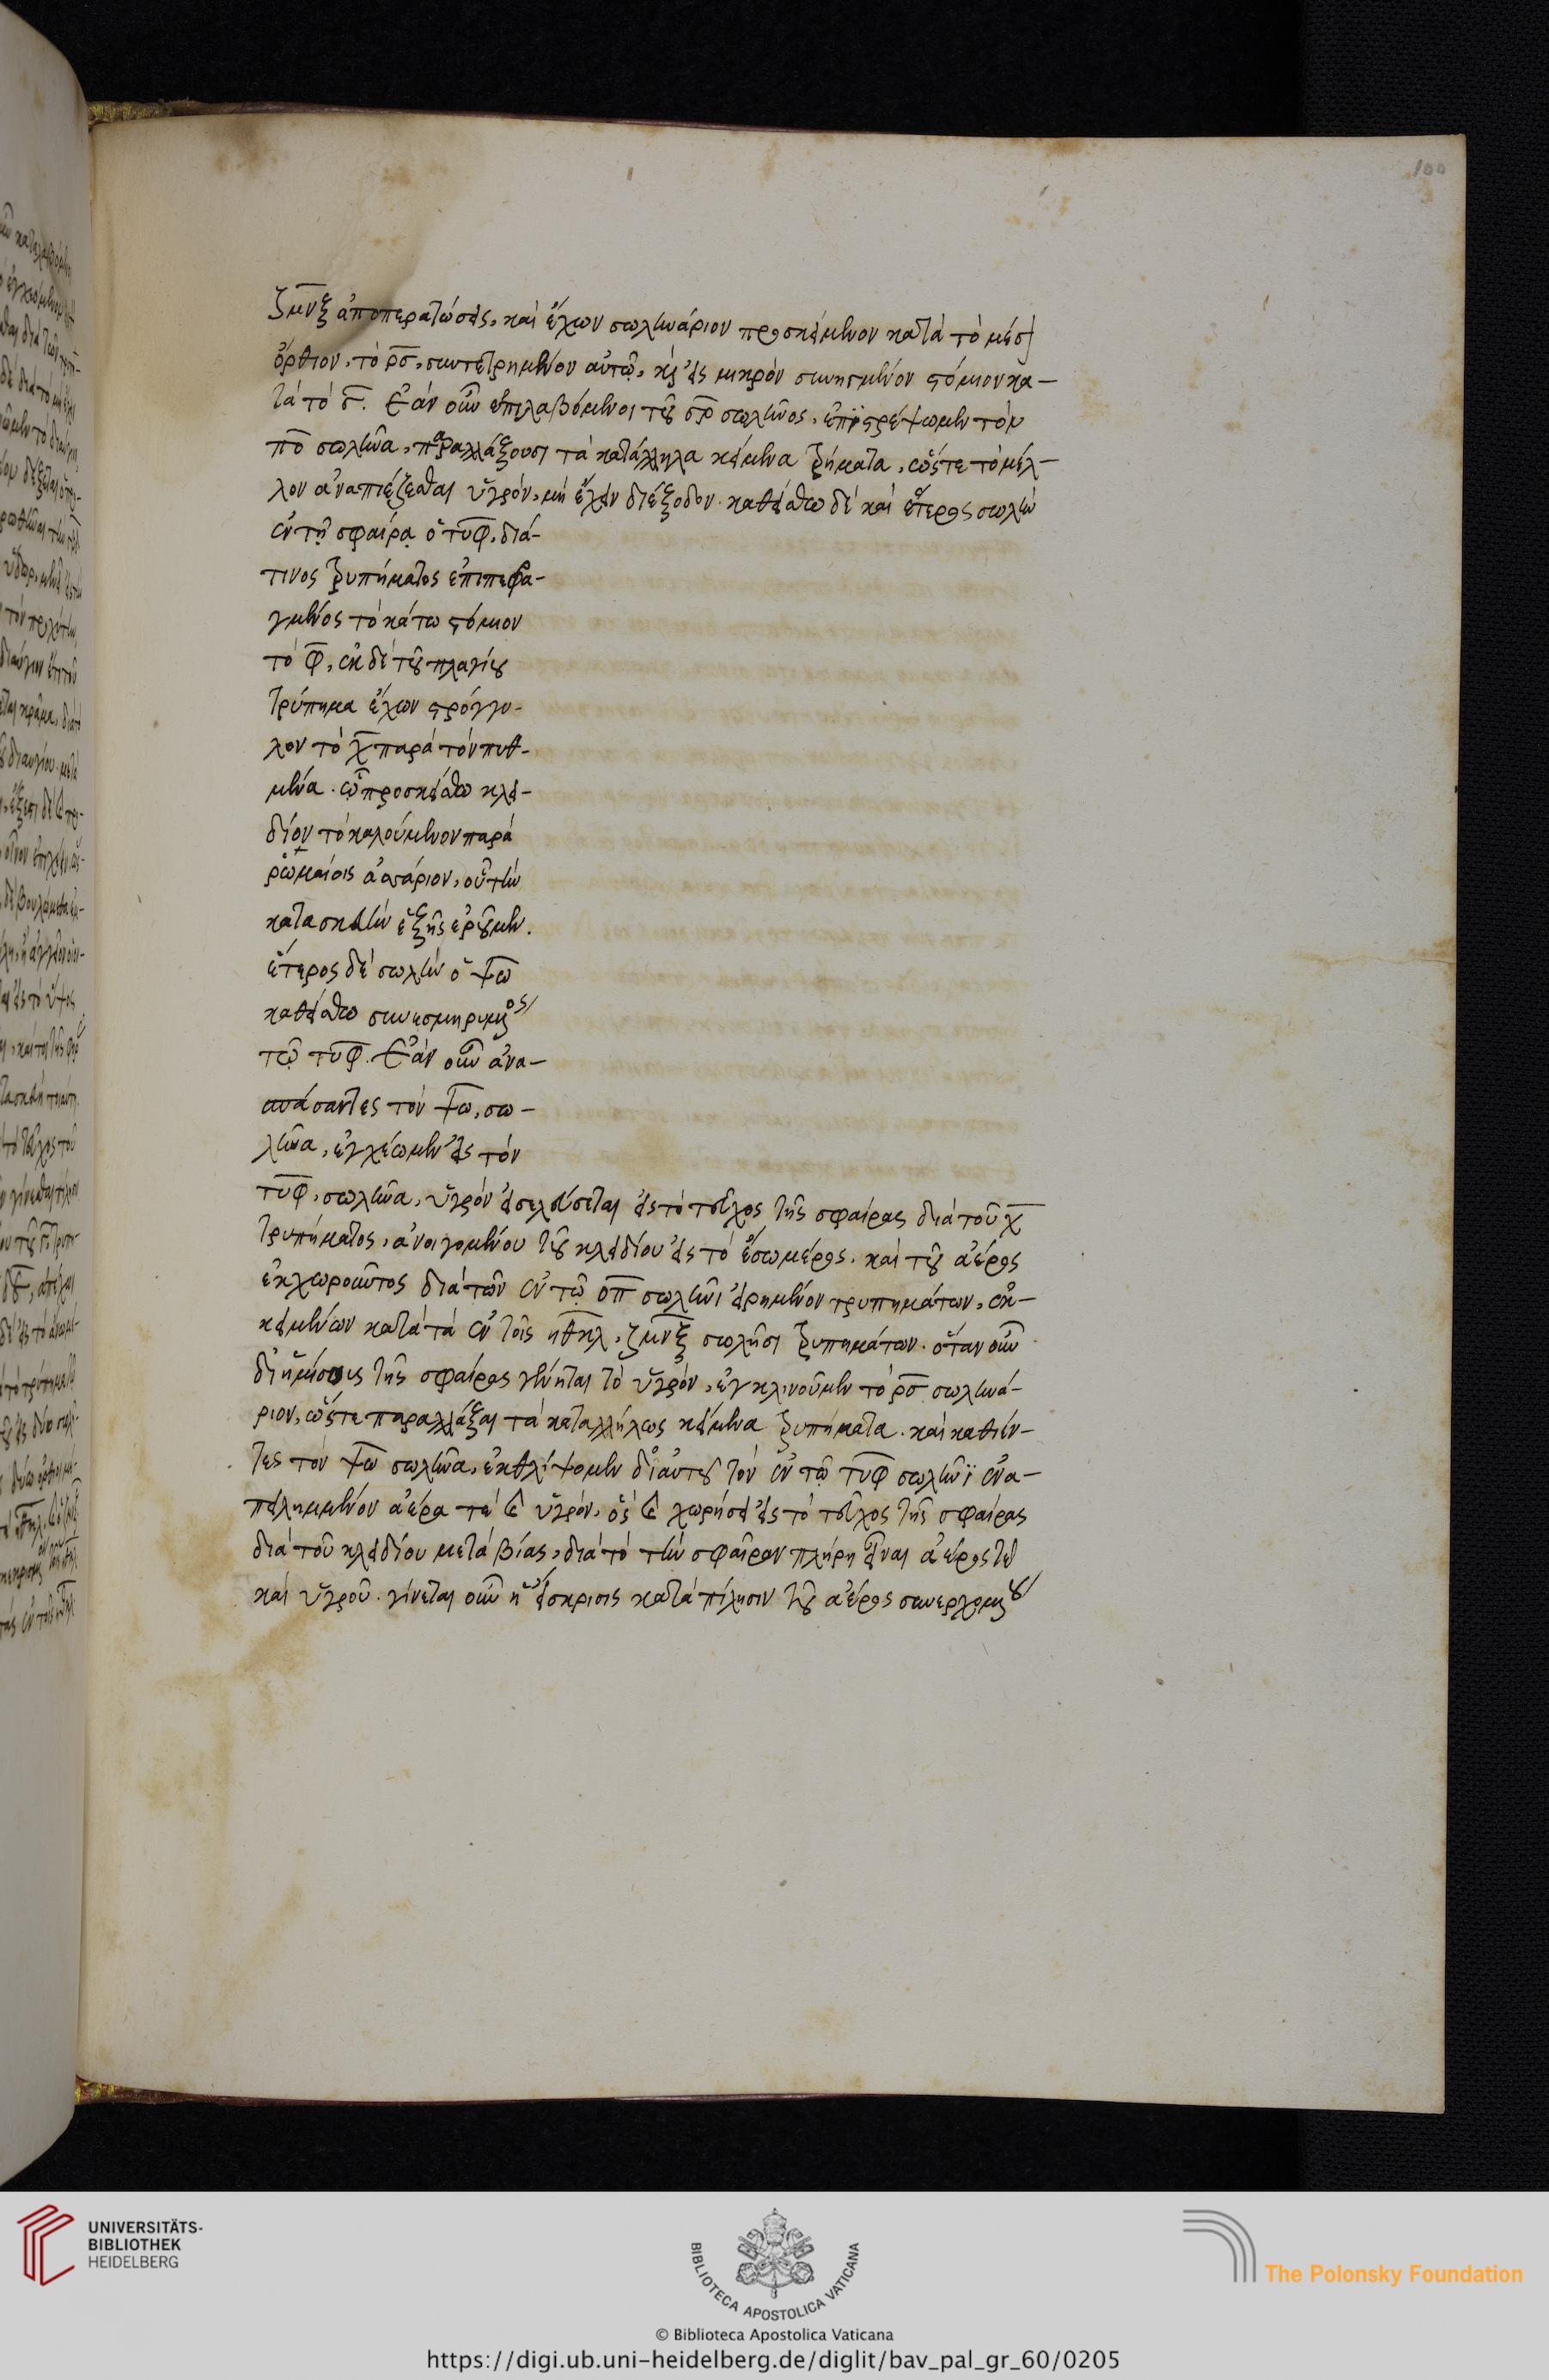 100
ζμνξ ἀποπερατώσεις, καὶ ἔχων σωληνάριον προσκείμενον κατὰ τὸ μέσον
ὄρθιον, τὸ ρσ, συντετρημένον αὐτῷ, καὶ εἰς μικρὸν συνηγμένον στόμιον κα-
τὰ τὸ σ. Ἐὰν οὖν ἐπιλαβόμενοι τοῦ σρ σωλῆνος, ἐπιστρέψωμεν τὸν
πο σωλῆνα, παραλλάξουσι τὰ κατάλληλα κείμενα τρήματα, ὥστε τὸ μέλ-
λον ἀναπιέζεσθαι ὑγρόν, μὴ ἔχειν διέξοδον. καθείσθω δὲ καὶ ἕτερος σωλὴν
ἐν τῇ σφαίρᾳ ὁ τυφ, διά
τινος τρυπήματος ἐπιπεφρα-
γμένος τὸ κάτω στόμιον
τὸ φ, ἐκ δὲ τοῦ πλαγίου
τρύπημα ἔχων στρογγύ-
λον τὸ χ παρὰ τὸν πυθ-
μένα. ᾧ προσκείσθω κλει-
δίον τὸ καλούμενον παρὰ
ῥωμαίοις ἀσσάριον, οὗ τὴν
κατασκευὴν ἑξῆς ἐροῦμεν.
ἕτερος δὲ σωλὴν ὁ ψω
καθείσθω συνεσμηρισμένος
τῷ τυφ. Ἐὰν οὖν ἀνα-
σπάσαντες τὸν ψω, σω-
λῆνα, ἐγχέωμεν εἰς τὸν
τυφ, σωλῆνα, ὑγρὸν εἰσελεύσεται εἰς τὸ τεῦχος τῆς σφαίρας διὰ τοῦ χ
τρυπήματος, ἀνοιγομένου τοῦ κλειδίου εἰς τὸ ἔσω μέρος. καὶ τοῦ ἀέρος
ἐκχωροῦντος διὰ τῶν ἐν τῷ οπ σωλῆνι εἰρημένον τρυπημάτων, ἐκ-
κειμένων κατὰ τὰ ἐν τοῖς ηθκλ, ζμνξ σωλῆσι τρυπημάτων. ὅταν οὖν
δι' ἡμίσους τῆς σφαίρας γένηται τὸ ὑγρόν, ἐγκλινοῦμεν τὸ ρσ σωληνά-
ριον, ὥστε παραλλάξαι τὰ καταλλήλως κείμενα τρυπήματα. καὶ καθιέν-
τες τὸν ψω σωλῆνα, ἐκθλίψομεν δι' αὐτοῦ τὸν ἐν τῷ τυφ σωλῆνι ἐνα-
πειλημμένον ἀέρα τε καὶ ὑγρόν, ὃς καὶ χωρήσει εἰς τὸ τεῦχος τῆς σφαίρας
διὰ τοῦ κλειδίου μετὰ βίας, διὰ τὸ τὴν σφαῖραν πλήρη εἶναι ἀέρος τε
καὶ ὑγροῦ. γίνεται οὖν ἡ εἴσκρισις κατὰ πίλησιν τοῦ ἀέρος συνερχομένου
UNIVERSITÄTS-
BIBLIOTHEK
HEIDELBERG
BIBLIOTECA APOSTOLICA VATICANA
The Polonsky Foundation
© Biblioteca Apostolica Vaticana
https://digi.ub.uni-heidelberg.de/diglit/bav_pal_gr_60/0205